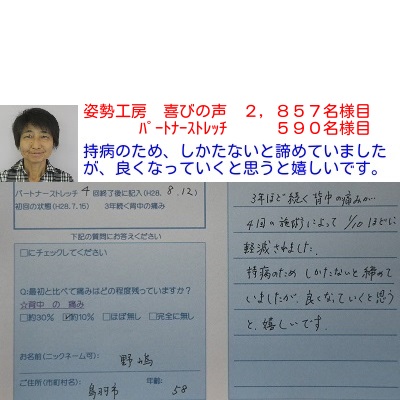 姿勢工房　喜びの声　２，８５７名様目
ﾊﾟｰﾄﾅｰｽﾄﾚｯﾁ　　５９０名様目
持病のため、しかたないと諦めていました
が、良くなっていくと思うと嬉しいです。
パートナーストレッチ 4 回終了後に記入(H28. 8.12)
初回の状態(H28.7.15)　3年続く背中の痛み
下記の質問にお答えください
□にチェックしてください
Q:最初と比べて痛みはどの程度残っていますか?
☆背中 の 痛み
□約30% ☑約10% □ほぼ無し □完全に無し
お名前(ニックネーム可): 野嶋
ご住所(市町村名): 鳥羽市 年齢: 58
3年ほど続く背中の痛みが
4回の施術によって 1/10 ほどに
軽減されました.
持病のため しかたないと諦めて
いましたが、良くなっていくと思う
と、嬉しいです.